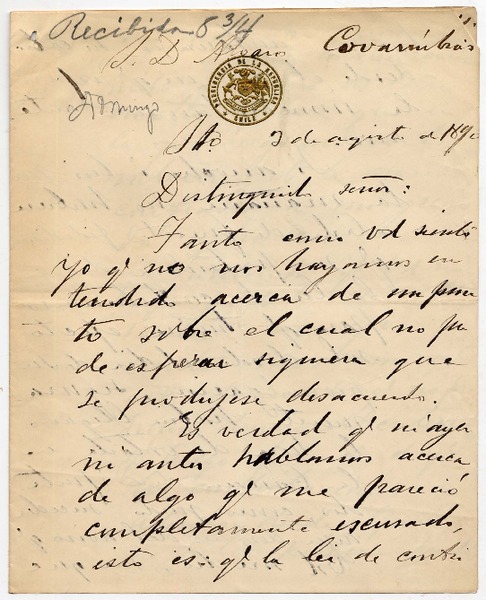 Recibida 8 3/4
S. D. Alvaro Covarrúbias
Domingo
PRESIDENCIA DE LA REPUBLICA CHILE
Sto 3 de agosto de 1890
Distinguido señor:
Tanto como Vd siento
yo qe no nos hayamos en
tendido acerca de un pun
to sobre el cual no pu
de esperar siquiera que
se produjese desacuerdo.
Es verdad qe ni ayer
ni antes hablamos acerca
de algo qe me pareció
completamente escusado,
esto es qe la lei de contri